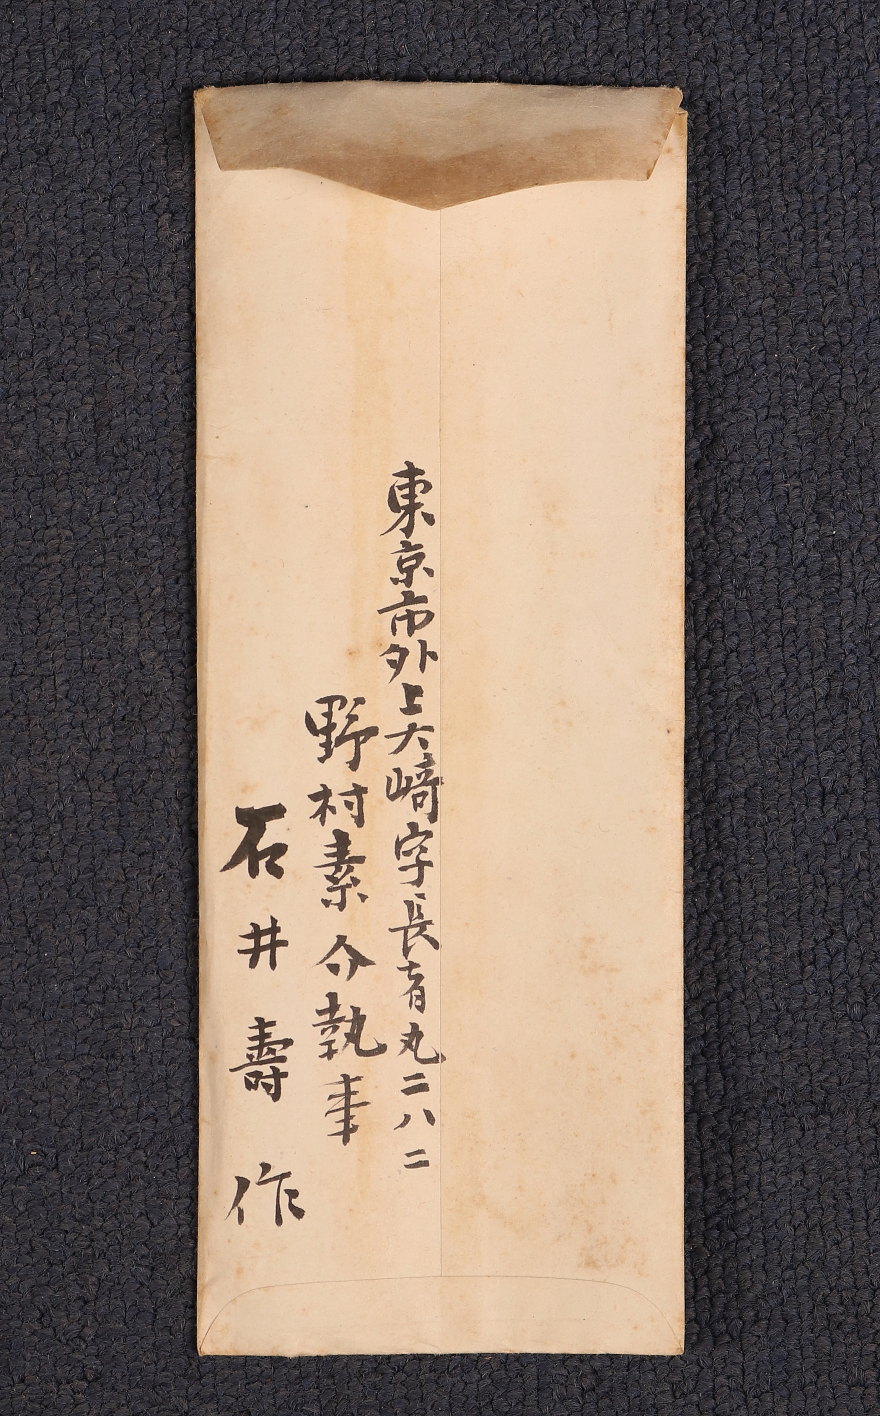 東京市外上大崎字長者丸二八二
野村素介執事
石井壽作